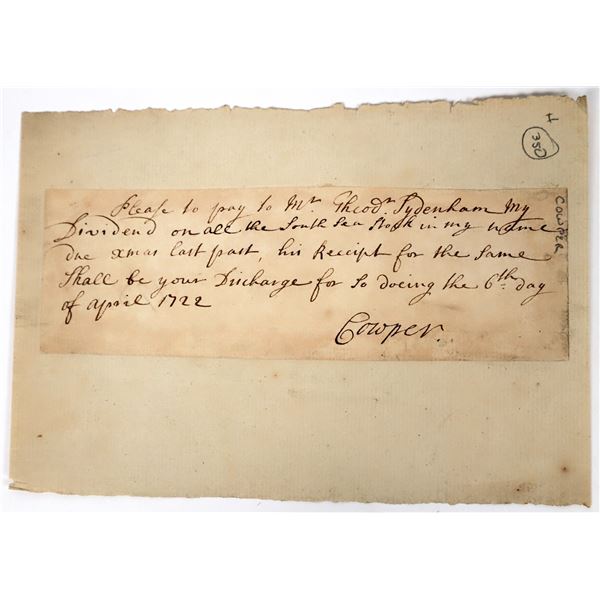 Please to pay to Mr. Theodr. Sydenham My
Dividend on all the South Sea Stock in my name
due xmas last past, his Receipt for the Same
Shall be your Discharge for so doeing the 6th. day
of april 1722
Cowper.
350
COWPER